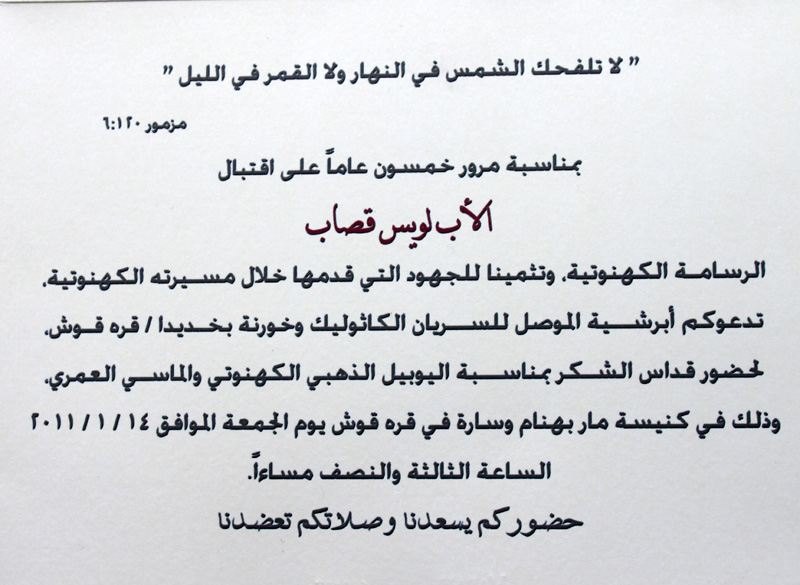 ” لا تلفحك الشمس في النهار ولا القمر في الليل ”
مزمور ١٢٠:٦
بمناسبة مرور خمسون عاماً على اقتبال
الأب لويس قصاب
الرسامة الكهنوتية، وتثمينا للجهود التي قدمها خلال مسيرته الكهنوتية،
تدعوكم أبرشية الموصل للسريان الكاثوليك وخورنة بخديدا / قره قوش،
لحضور قداس الشكر بمناسبة اليوبيل الذهبي الكهنوتي والماسي العمري،
وذلك في كنيسة مار بهنام وسارة في قره قوش يوم الجمعة الموافق ١٤ / ١ / ٢٠١١
الساعة الثالثة والنصف مساءاً.
حضوركم يسعدنا وصلاتكم تعضدنا